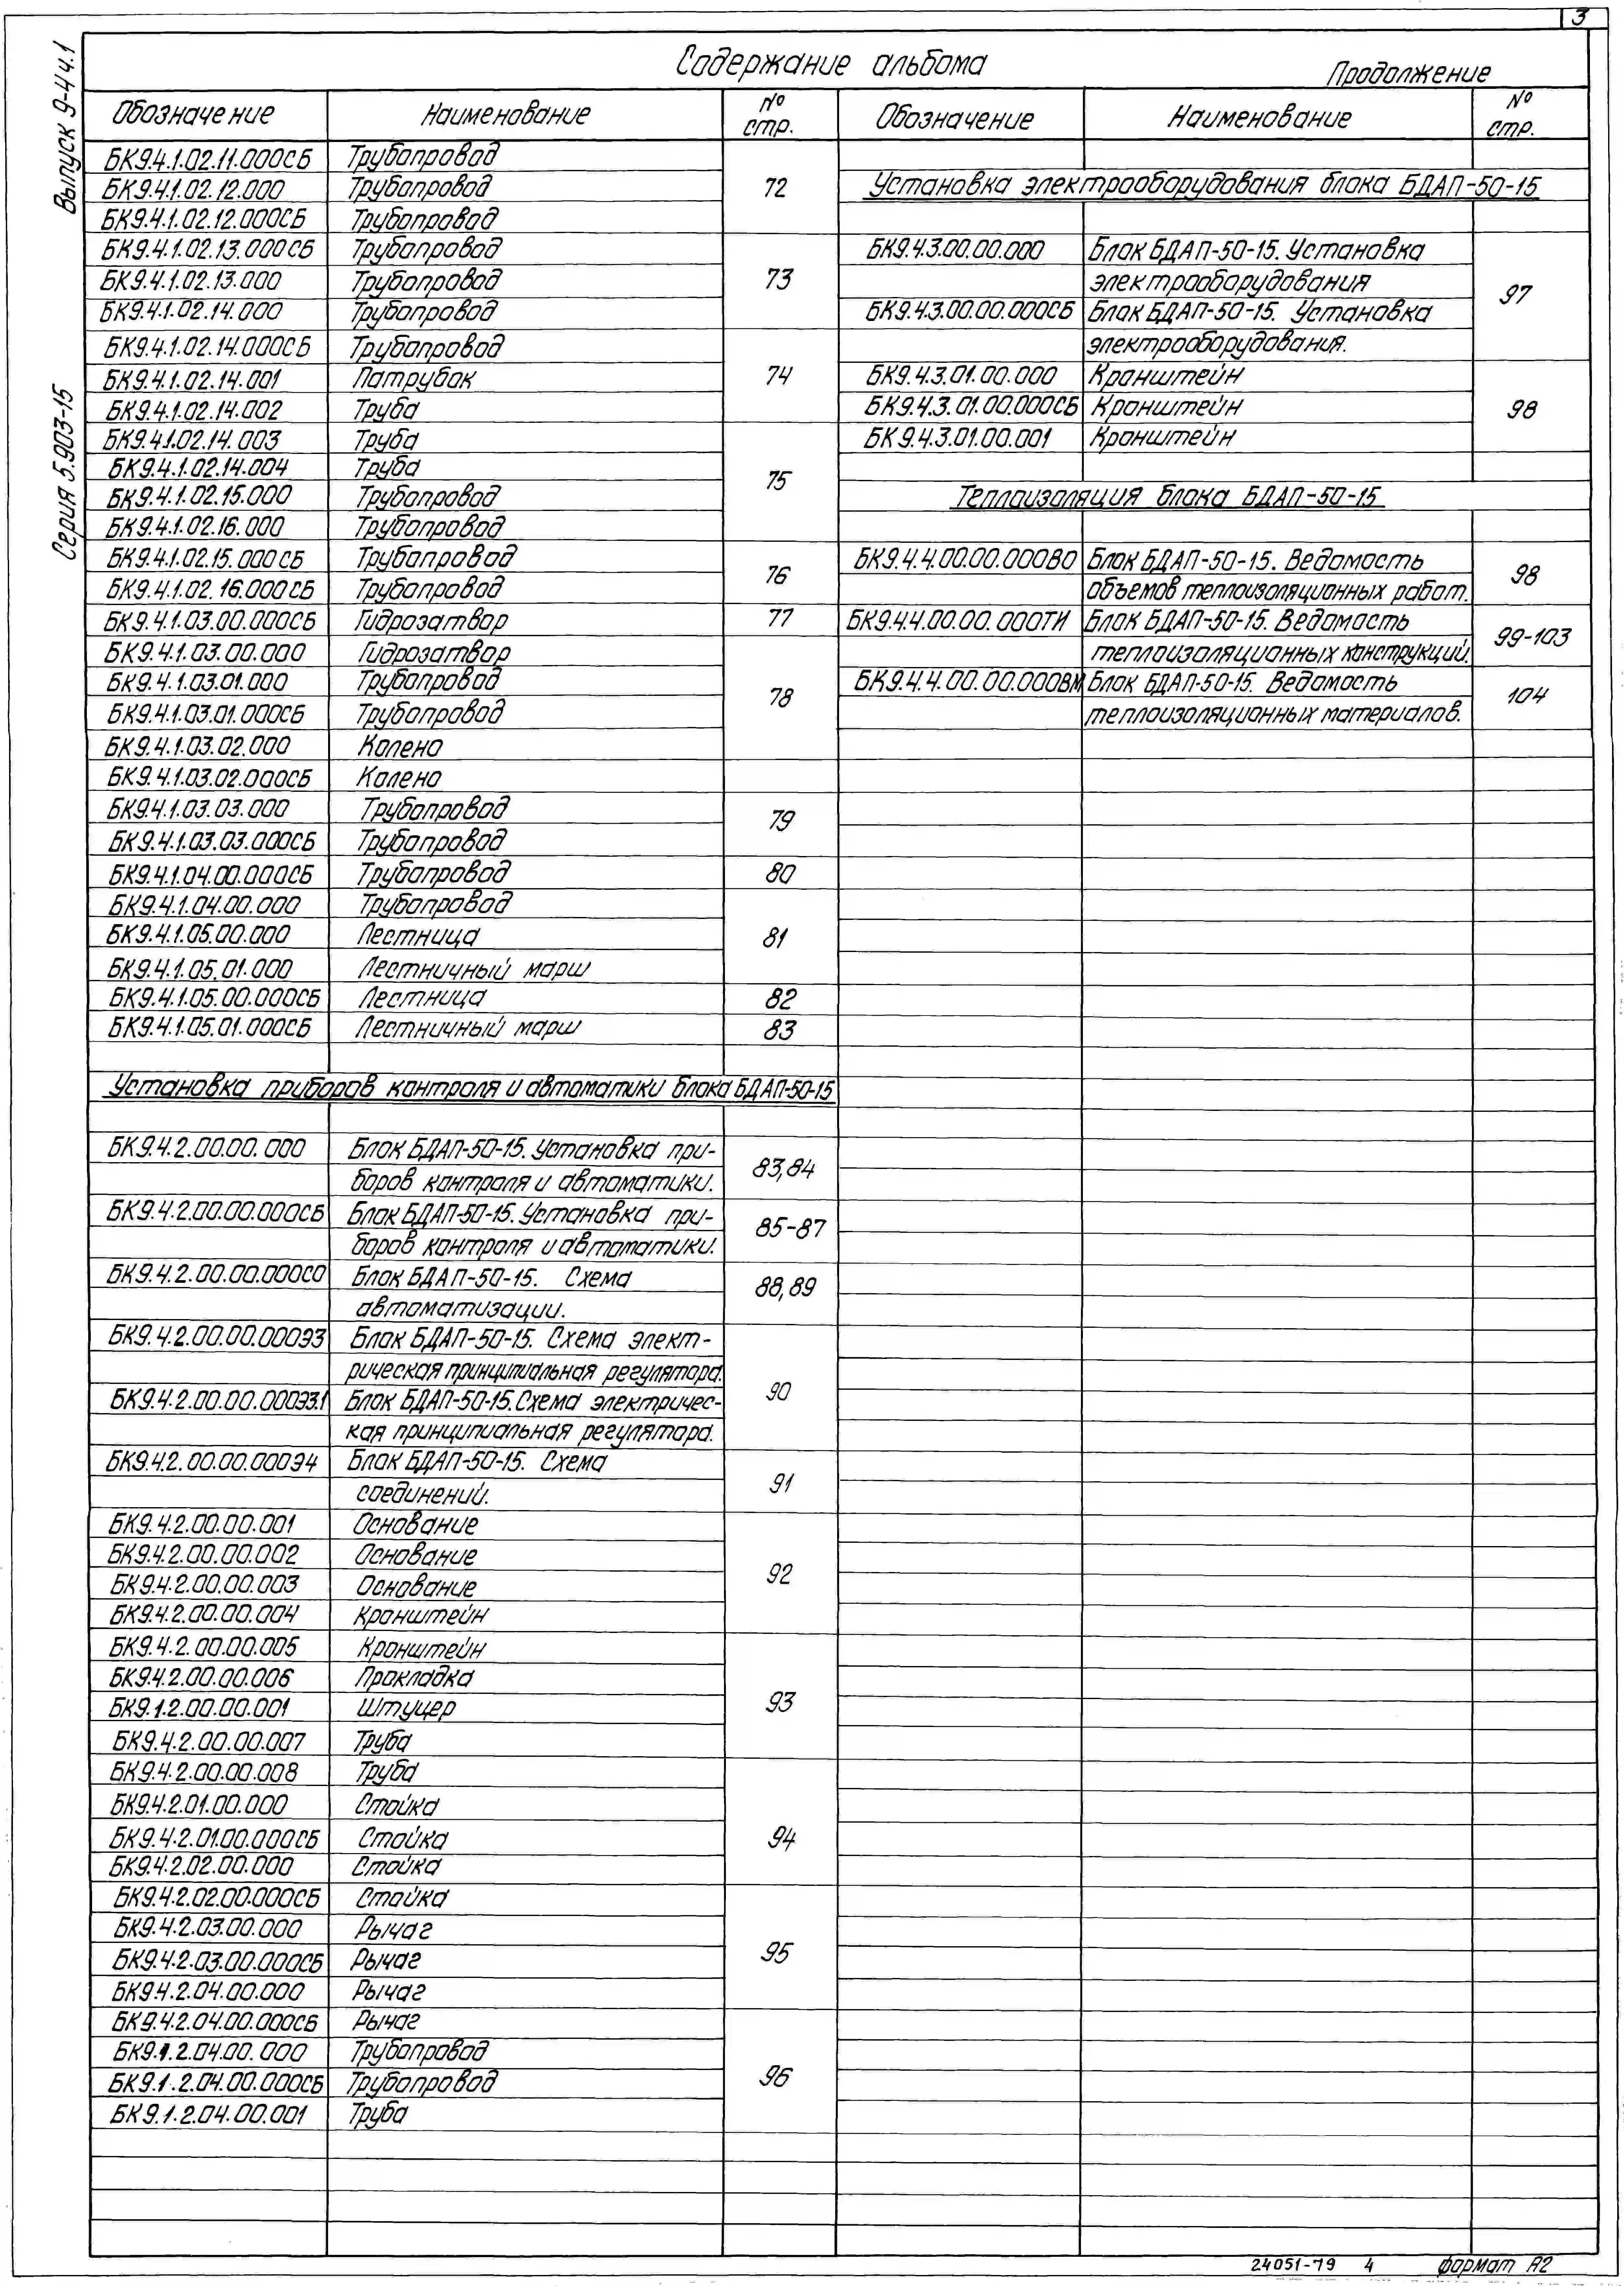 3
Выпуск 9-4 ч.1
Серия 5.903-15
Содержание альбома
Продолжение
Обозначение Наименование № стр.
БК9.4.1.02.11.000СБ Трубопровод
БК9.4.1.02.12.000 Трубопровод 72
БК9.4.1.02.12.000СБ Трубопровод
БК9.4.1.02.13.000СБ Трубопровод
БК9.4.1.02.13.000 Трубопровод 73
БК9.4.1.02.14.000 Трубопровод
БК9.4.1.02.14.000СБ Трубопровод
БК9.4.1.02.14.001 Патрубок 74
БК9.4.1.02.14.002 Труба
БК9.4.1.02.14.003 Труба
БК9.4.1.02.14.004 Труба 75
БК9.4.1.02.15.000 Трубопровод
БК9.4.1.02.16.000 Трубопровод
БК9.4.1.02.15.000СБ Трубопровод 76
БК9.4.1.02.16.000СБ Трубопровод
БК9.4.1.03.00.000СБ Гидрозатвор 77
БК9.4.1.03.00.000 Гидрозатвор
БК9.4.1.03.01.000 Трубопровод 78
БК9.4.1.03.01.000СБ Трубопровод
БК9.4.1.03.02.000 Колено
БК9.4.1.03.02.000СБ Колено
БК9.4.1.03.03.000 Трубопровод 79
БК9.4.1.03.03.000СБ Трубопровод
БК9.4.1.04.00.000СБ Трубопровод 80
БК9.4.1.04.00.000 Трубопровод
БК9.4.1.05.00.000 Лестница 81
БК9.4.1.05.01.000 Лестничный марш
БК9.4.1.05.00.000СБ Лестница 82
БК9.4.1.05.01.000СБ Лестничный марш 83
Установка приборов контроля и автоматики блока БДАП-50-15
БК9.4.2.00.00.000 Блок БДАП-50-15. Установка при- 83,84
боров контроля и автоматики.
БК9.4.2.00.00.000СБ Блок БДАП-50-15. Установка при- 85-87
боров контроля и автоматики.
БК9.4.2.00.00.000СО Блок БДАП-50-15. Схема 88,89
автоматизации.
БК9.4.2.00.00.000Э3 Блок БДАП-50-15. Схема элект-
рическая принципиальная регулятора. 90
БК9.4.2.00.00.000Э3.1 Блок БДАП-50-15. Схема электричес-
кая принципиальная регулятора.
БК9.4.2.00.00.000Э4 Блок БДАП-50-15. Схема 91
соединений.
БК9.4.2.00.00.001 Основание
БК9.4.2.00.00.002 Основание 92
БК9.4.2.00.00.003 Основание
БК9.4.2.00.00.004 Кронштейн
БК9.4.2.00.00.005 Кронштейн
БК9.4.2.00.00.006 Прокладка 93
БК9.1.2.00.00.001 Штуцер
БК9.4.2.00.00.007 Труба
БК9.4.2.00.00.008 Труба
БК9.4.2.01.00.000 Стойка
БК9.4.2.01.00.000СБ Стойка 94
БК9.4.2.02.00.000 Стойка
БК9.4.2.02.00.000СБ Стойка
БК9.4.2.03.00.000 Рычаг 95
БК9.4.2.03.00.000СБ Рычаг
БК9.4.2.04.00.000 Рычаг
БК9.4.2.04.00.000СБ Рычаг
БК9.1.2.04.00.000 Трубопровод 96
БК9.1.2.04.00.000СБ Трубопровод
БК9.1.2.04.00.001 Труба
Обозначение Наименование № стр.
Установка электрооборудования блока БДАП-50-15
БК9.4.3.00.00.000 Блок БДАП-50-15. Установка
электрооборудования 97
БК9.4.3.00.00.000СБ Блок БДАП-50-15. Установка
электрооборудования.
БК9.4.3.01.00.000 Кронштейн
БК9.4.3.01.00.000СБ Кронштейн 98
БК9.4.3.01.00.001 Кронштейн
Теплоизоляция блока БДАП-50-15
БК9.4.4.00.00.000ВО Блок БДАП-50-15. Ведомость 98
объемов теплоизоляционных работ.
БК9.4.4.00.00.000ТИ Блок БДАП-50-15. Ведомость 99-103
теплоизоляционных конструкций.
БК9.4.4.00.00.000ВМ Блок БДАП-50-15. Ведомость 104
теплоизоляционных материалов.
24051-79 4 формат А2